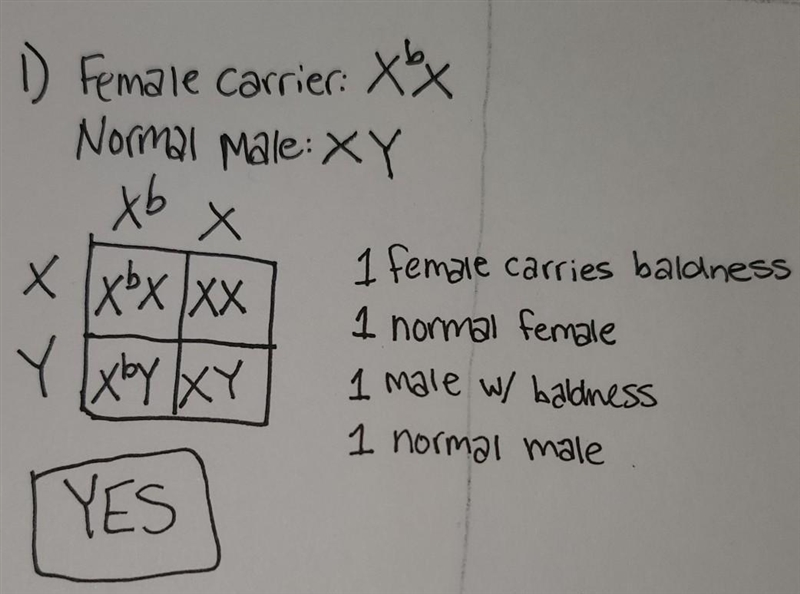 1) Female carrier: XᵇX
Normal Male: XY
Xᵇ X
X XᵇX XX
Y XᵇY XY
1 female carries baldness
1 normal female
1 male w/ baldness
1 normal male
YES